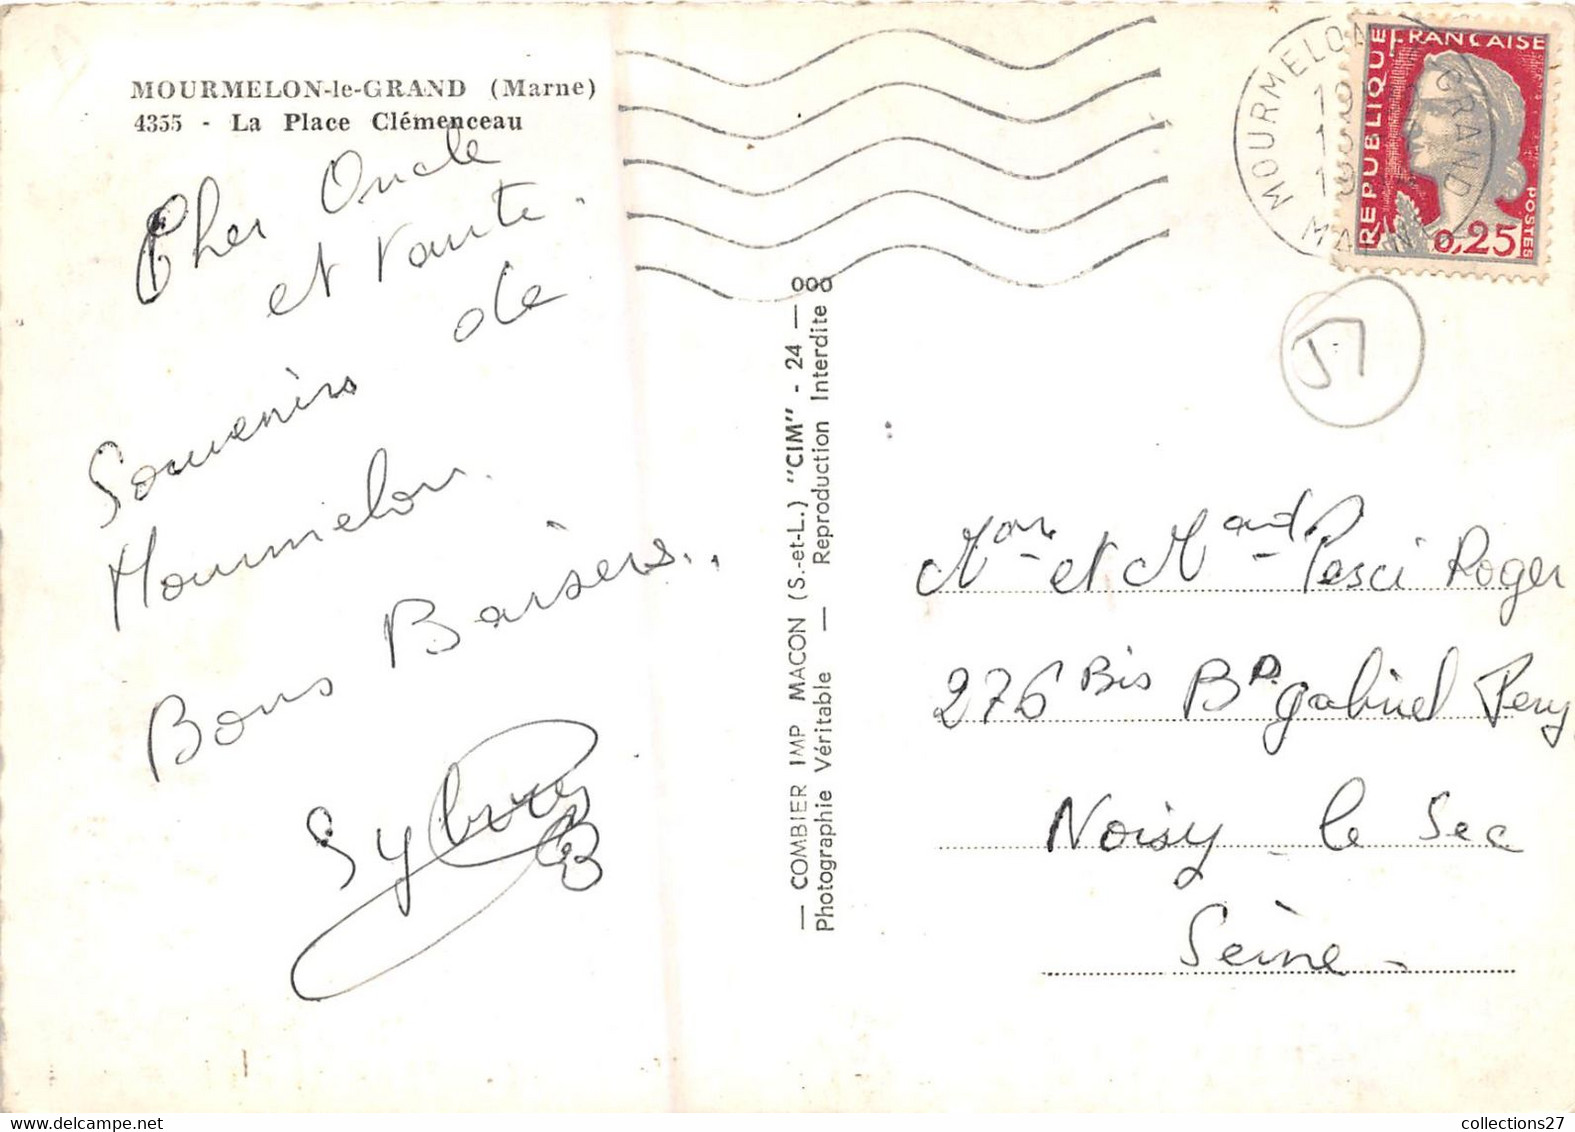 MOURMELON-le-GRAND (Marne)
4355 - La Place Clémenceau
Cher Oncle
et Tante.
Souvenirs de
Mourmelon.
Bons Baisers..
— COMBIER IMP MACON (S.-et-L.) "CIM" - 24 —
Photographie Véritable — Reproduction Interdite
MOURMELON GRAND
REPUBLIQUE FRANÇAISE
POSTES
0,25
51
Mon et Mad Pesci Roger
276 Bis Bd gabriel Pery
Noisy - le Sec
Seine -
collections27